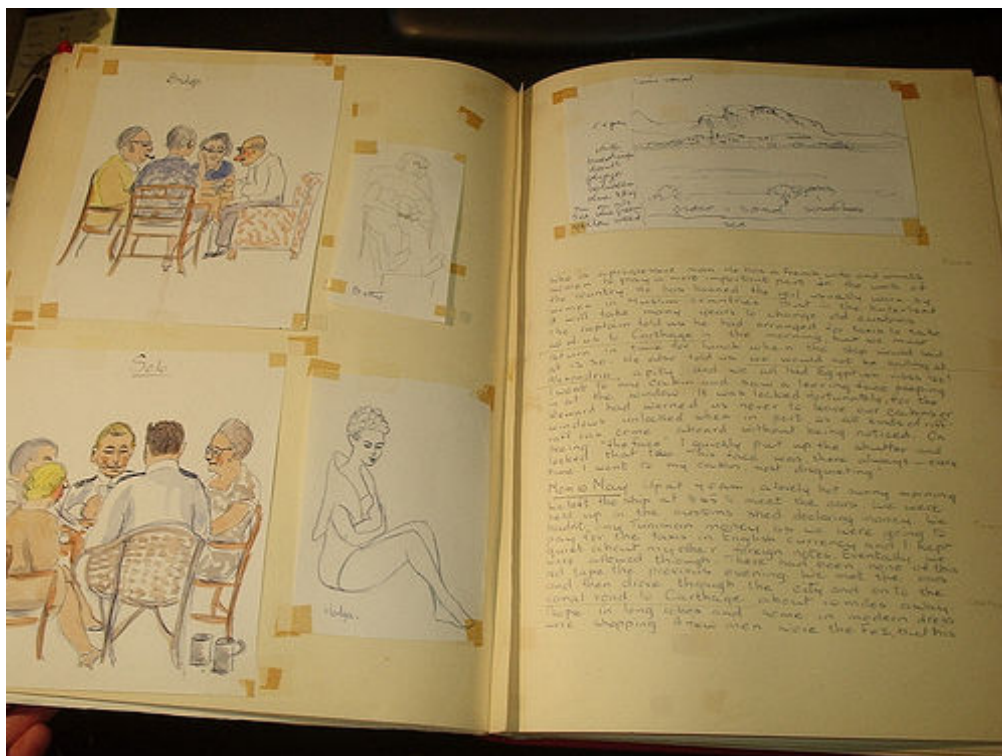 Bridge
Solo
sand
sea
who is a progressive man. He has a French wife and wants
women to play a more important part in the work of
the country. He has banned the veil usually worn by
women in Muslim countries. That is the Easterners
it will take many years to change old customs.
The captain told us he had arranged for taxis to take
all of us to Carthage in the morning, but we must
return in time for lunch when the ship would sail
at 12.30. He also told us we would not be calling at
Alexandria, a pity and we all had Egyptian visas too!
I went to my cabin and saw a leering face peeping
in at the window. It was locked fortunately, for the
steward had warned us never to leave our cabins or
windows unlocked when in port as all kinds of riff
raff can come aboard without being noticed. On
seeing "the face" I quickly put up the shutter and
locked that too. This face was there always - every
time I went to my cabin, most disquieting.
May Up at 7 am, a lovely hot sunny morning
We left the ship at to meet the cars. We were
held up in the customs shed declaring money. We
hadn't any Tunisian money as we were going to
pay for the taxis in English currency and I kept
quiet about my other foreign notes. Eventually we
were allowed through. There had been none of this
red tape the previous evening. We met the cars
and then drove through the city and onto the
canal road to Carthage about 10 miles away.
People in long robes and some in modern dress
were shopping. A few men wore the fez, but this